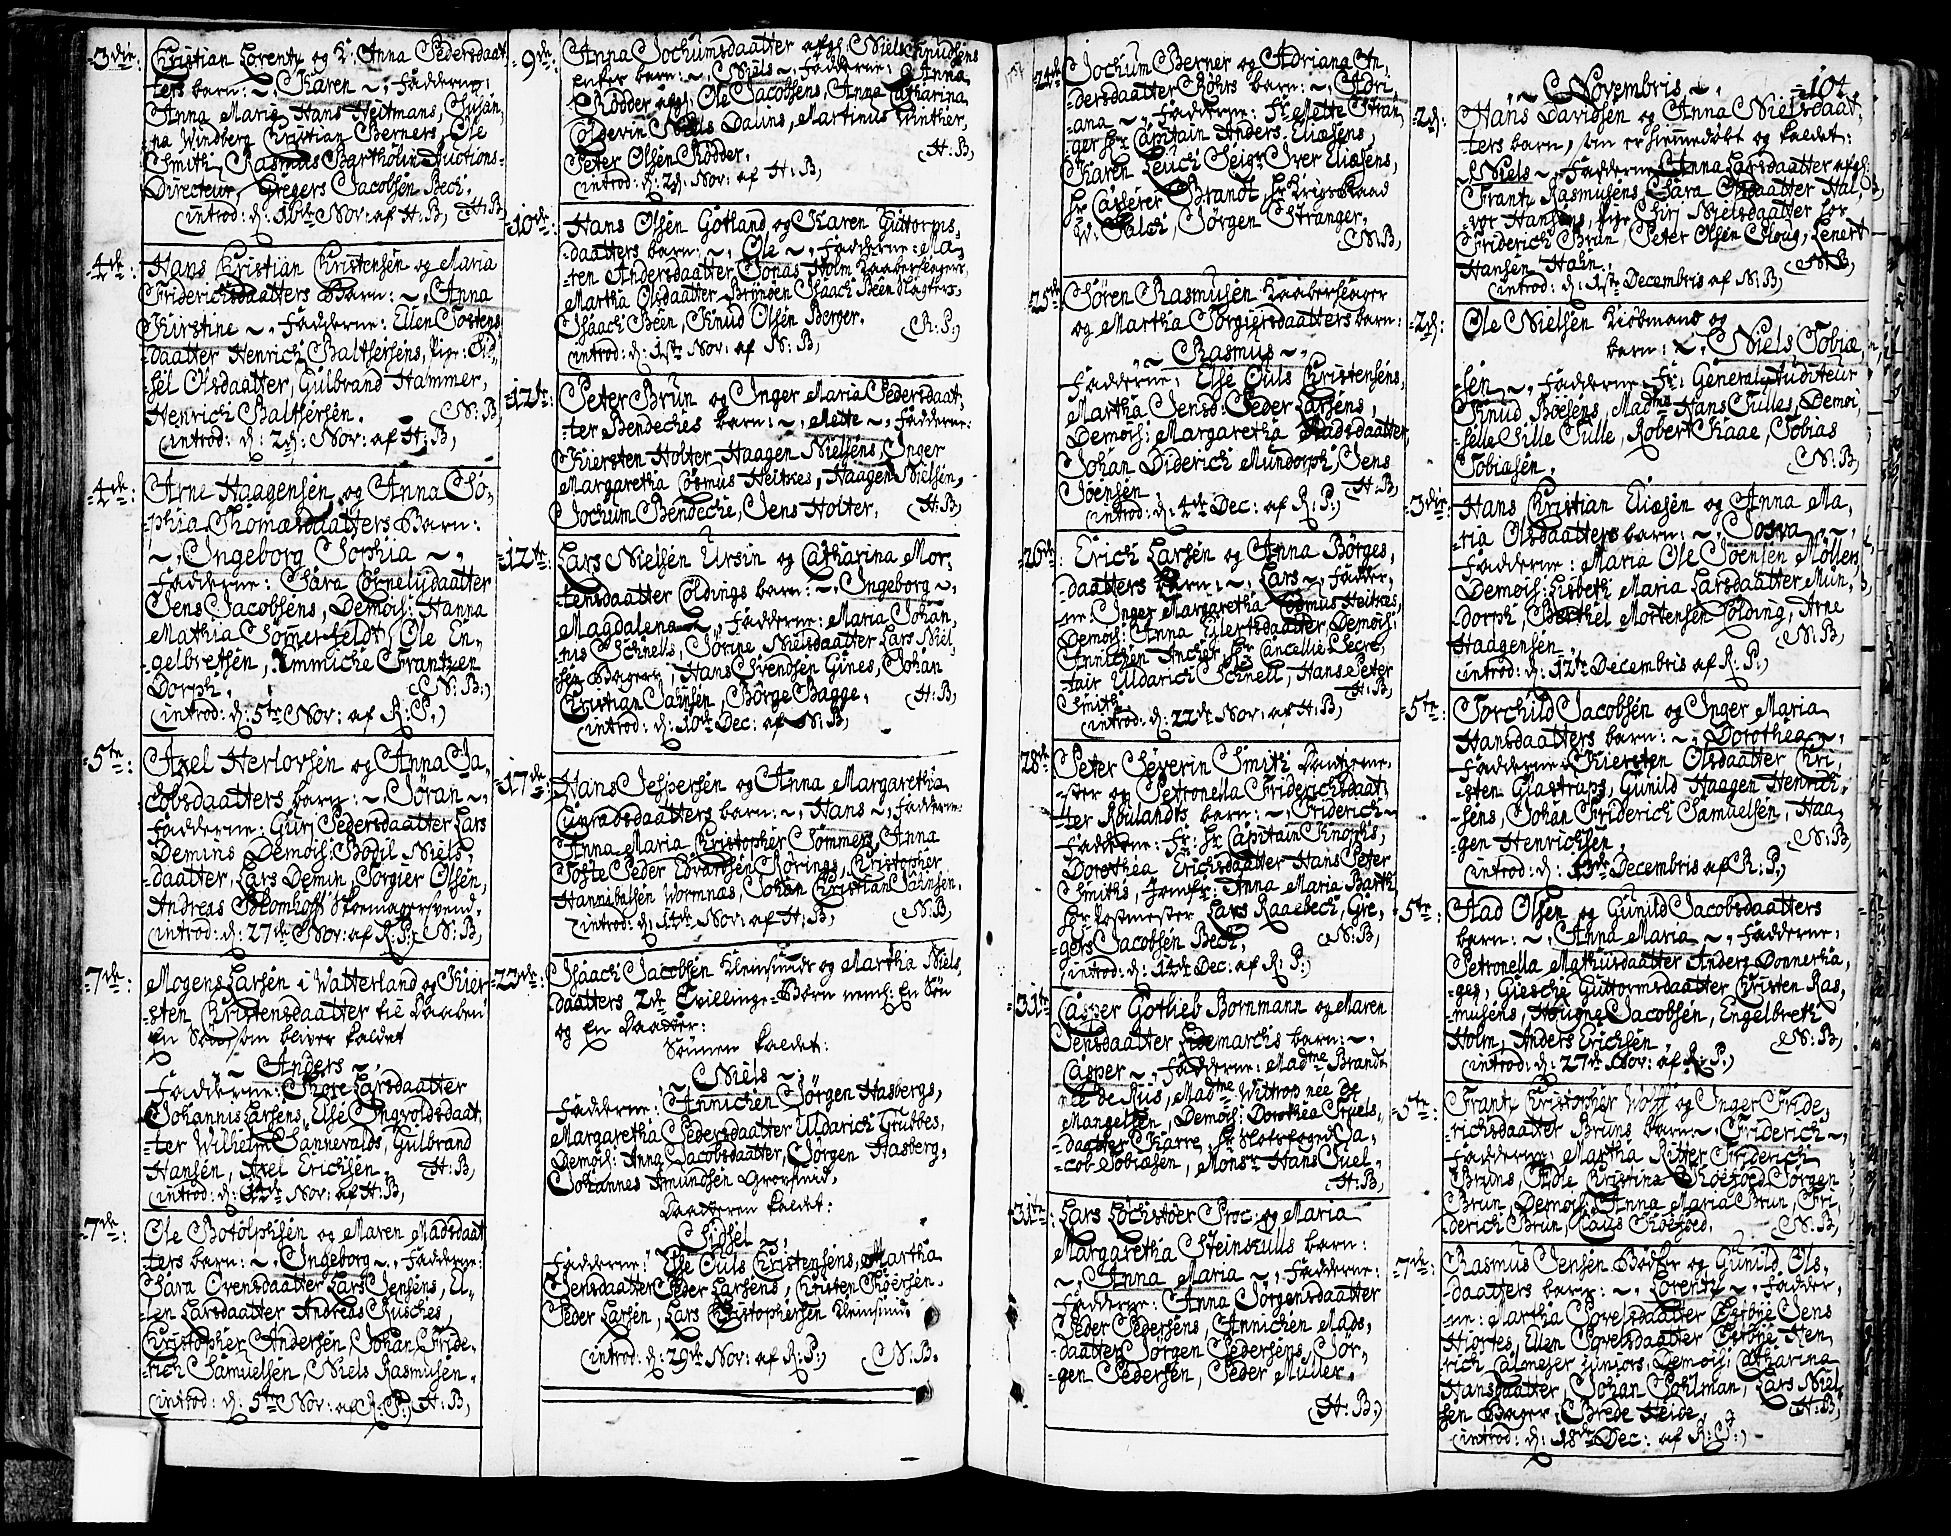 3die: Christian Lorentz og K: Anna Pedersdaat
ters barn: ~, Karen ~, Fadderne:
Anna Maria Hans Heitmans, Susan,
na Windberg Christian Berners, Ole
Smith, Rasmus Bartholin Auctions-
Directeur, Gregers Jacobsen Bech.
(introd: d: 16de Nov: af H: B) H: B)
4de: Hans Christian Christensen og Maria
Friderichsdaatters Barn: ~, Anna
Kirstine ~, Fadderne: Ellen Tostens
daatter Henrich Baltsersens, Pige: Sid-
sel Olsdaatter, Gulbrand Hammer,
Henrich Baltsersen. (N: B)
(introd: d: 2d: Nov: af H: B)
4de: Arne Haagensen og Anna So-
phia Thomædaatters Barn:
~, Ingeborg Sophia ~,
Fadderne: Sara Cornelijdaatter
Jens Jacobsens, Demois: Hanna
Mathia Sommerfeldt, Ole En-
gelbretsen, Emmiche Frantzen
Dorph. (N: B)
(introd: d: 5te Nov: af R: P:)
5te: Axel Herlovsen og Anna Ja-
cobsdaatters barn: ~, Jöran ~,
Fadderne: Guri Pedersdaatter Lars
Demins Demois: Bodil Niels-
daatter, Lars Demin, Torgier Olsen,
Andreas Blomhoff Skomagersvend.
(introd: d: 27de Nov: af R: P:) N: B)
7de: Mogens Larsen i Watterland og Kier
sten Christensdaatter til Daaben
En Sön som bliver kaldet
~ Anders ~,
Fadderne: Thore Larsdaatter
Johannis Larsens, Else Ingvoldsdaat,
ter Wilhelm Sannevalds, Gulbrand
Hansen, Axel Erichsen. H: B)
(introd: d: 14de Nov: af H: B)
7de: Ole Botolphsen og Maren Madsdaat
ters barn: ~, Ingeborg ~, Fadderne:
Sara Ovensdaatter Lars Jensens, El-
len Larsdaatter Andreas Rusches,
Christopher Andersen, Johan Fride-
rich Samuelsen, Niels Rasmusen.
(introd: d: 5te Nov: af R: P:) H: B)
9de: Anna Jochumsdaatter afg: Niels Knudsens
Enkes barn: ~, Niels ~, Fadderne: Anna
Rödder afg: Ole Jacobsens, Anna Catharina
Coldevin Niels Dalins, Martinus Winther,
Peter Olsen Rödder. (H: B)
(introd: d: 2d: Nov: af H: B)
10de: Hans Olsen Gotland og Karen Guttorms-
daatters barn: ~, Ole ~, Fadderne: Ma-
ren Andersdaatter Jonas Holm Kaabberslagers,
Martha Olsdaatter Brynsen Isaach Been Slagters,
Isaach Been, Knud Olsen Berger. (R: P:)
(introd: d: 1ste Nov: af N: B)
12te: Peter Brun og Inger Maria Pedersdaat,
ter Bendeches barn: ~, Mette ~, Fadderne:
Kiersten Holter Haagen Nielsens, Inger
Margaretha Cosmus Heitkes, Haagen Nielsen,
Jochum Bendeche, Jens Holter. (H: B)
12te: Lars Nielsen Ursin og Catharina Mor-
tensdaatter Coldings barn: ~, Ingeborg ~,
Magdalena ~, Fadderne: Maria Johan-
nis Schnels, Jörine Nielsdaatter Lars Niel-
sen Bagers, Hans Svendsen Gines, Johan
Christian Jansen, Börge Bagge. (H: B)
(introd: d: 10de Dec: af N: B)
17de: Hans Jespersen og Anna Margaretha
Cunradsdaatters barn: ~, Hans ~, Fadderne:
Anna Maria Christopher Sommers, Anna
Toste Peder Edvardsen Rörings, Christopher
Hannibalsen Wormnæs, Johan Christian Jansen.
(introd: d: 14de Nov: af H: B) (N: B)
23de: Isaach Jacobsen Kleinsmid og Martha Niels
daatters 2de Tvillinge-Börn neml: En Sön
og En Daatter:
Sönnen kaldet:
~ Niels ~,
Fadderne: Annichen Jörgen Hasbergs,
Margaretha Pedersdaatter Uldarich Grubbes,
Demois: Anna Jacobsdaatter, Jörgen Hasberg,
Johannes Amundsen Grovsmid.
Daatteren kaldet:
Sidsel ~,
Fadderne: Else Ouls Christensens, Martha
Jensdaatter Peder Larsens, Christen Thöersen,
Peder Larsen, Lars Christophersen Kleinsmid.
(introd: d: 29de Nov: af R: P:) (N: B.
24de: Jochum Berner og Adriana An,
dersdaatter Röhrs barn: ~, Adri-
ana ~, Fadderne: Fr: Mette Stran
ger Hr: Capitain Anders Eliæsens,
Karen Leuch Seigr Iver Eliæsens,
Hr: Casserer Brandt, Hr: Krigs-Raad
W: Falch, Jörgen Stranger.
(N: B)
25de: Sören Rasmusen Kaabberslager
og Martha Torgiersdaatters barn:
~ Rasmus ~,
Fadderne: Else Ouls Christensens,
Martha Jensd: Peder Larsens,
Demois: Margaretha Madsdaatter,
Johan Diderich Mundorph, Jens
Joensen. (H: B)
(introd: d: 4de Dec: af R: P:)
26de: Erich Larsen og Anna Börges-
daatters barn: ~, Lars ~, Fadder-
ne: Inger Margaretha Cosmus Heitkes,
Demois: Anna Eilertsdaatter, Demois:
Annichen Ancher, Hr: Cancellie Secre-
tair Uldarich Schnell, Hans Peter
Smith. (H: B)
(introd: d: 22de Nov: af H: B)
28de: Peter Severin Smith
ster og Petronella Friderichsdaat
ter Roulands barn: ~, Friderich ~
Fadderne: Fr: Hr: Capitain Knophs,
Dorothea Erichsdaatter Hans Peter
Smiths, Jomfr: Anna Maria Barth
Hr: Postmester Lars Raaebech, Gre-
gers Jacobsen Bech. (N: B)
(introd: d: 14de Dec: af R: P:)
31te: Casper Gotlieb Bornmann og Maren
Jensdaatter Lidemarchs barn: ~,
Casper ~, Fadderne: Madme Brandt
née de Rus, Madme Wittrop née de
Mangelsen, Demois: Dorothea Truels-
daatter Kärre, Hr: Slotsfoged Ja-
cob Tobiæsen, Monsr Hans Juel.
(H: B)
31te: Lars Löchstöer Proc: og Maria
Margaretha Steinkulls barn:
~, Anna Maria ~, Fadderne:
Fadderne: Anna Jörgensdaatter
Peder Pedersens, Annichen Mads-
daatter Jörgen Pedersens, Jör-
gen Pedersen, Peder Muller.
(H: B)
104.
~ Novembris ~.
2d: Hans Davidsen og Anna Nielsdaat,
ters barn, som er hiemmedöbt og kaldet:
Niels ~, Fadderne: Anna Larsdaatter afg:
Frantz Rasmusens, Sara Olsdaatter Hal,
vor Hansens, Pige: Siri Nielsdaatter hos
Friderich Brun, Peter Olsen Ploug, Lenert
Hansen Hahn. (N: B)
(introd: d: 1ste Decembris af N: B)
2d: Ole Nielsen Kiöbmand og
barn: ~, Niels Tobiæ-
sen ~, Fadderne: Fr: General-Auditeur
Knud Böesens, Madme Hans Tulles, Demoi,
selle Sille Tulle, Robert Kaae, Tobias
Tobiæsen. (N: B)
3die: Hans Christian Eliæsen og Anna Ma-
ria Olsdaatters barn: ~, Josva ~,
Fadderne: Maria Ole Joensen Möllers
Demois: Lisbeth Maria Larsdaatter Mun-
dorph, Berthel Mortensen Colding, Arne
Haagensen. (N: B)
(introd: d: 12te Decembris af R: P:)
5te: Torchild Jacobsen og Inger Maria
Hansdaatters barn: ~, Dorothea ~,
Fadderne: Kiersten Olsdaatter Chri-
sten Glastrups, Gunild Haagen Henrich-
sens, Johan Friderich Samuelsen, Haa-
gen Henrichsen. (N: B)
(introd: d: 13de Decembris af R: P:)
5te: Aad Olsen og Gunild Jacobsdaatters
barn: ~, Anna Maria ~, Fadderne:
Petronella Mathisdaatter Anders Donnerha-
ges, Giesche Guttormsdaatter Christen Ras-
musens, Jacobsen, Engelbreth
Holm, Anders Erichsen. (N: B)
(introd: d: 27de Nov: af R: P:)
5te: Frantz Christopher Wolff og Inger Fride-
richsdaatter Bruns barn: ~, Friderich ~,
Fadderne: Martha Ritter Friderich
Bruns, Adle Christina Koefoed Jörgen
Brun, Demois: Anna Maria Brun, Fri-
derich Brun, Claus Koefoed. (N: B)
7de: Rasmus Jensen Bödker og Gunild Ols-
daatters barn: ~, Lorentz ~, Fadder-
ne: Martha Povelsdaatter Jens
Hiortes, Ellen Povelsdaatter Hen-
rich Calmejer Juniors, Demois: Catharina
Hansdaatter, Johan Pohlman, Lars Niel
sen Bager, Brede Heide. (H: B)
(introd: d: 18de Dec: af R: P:)